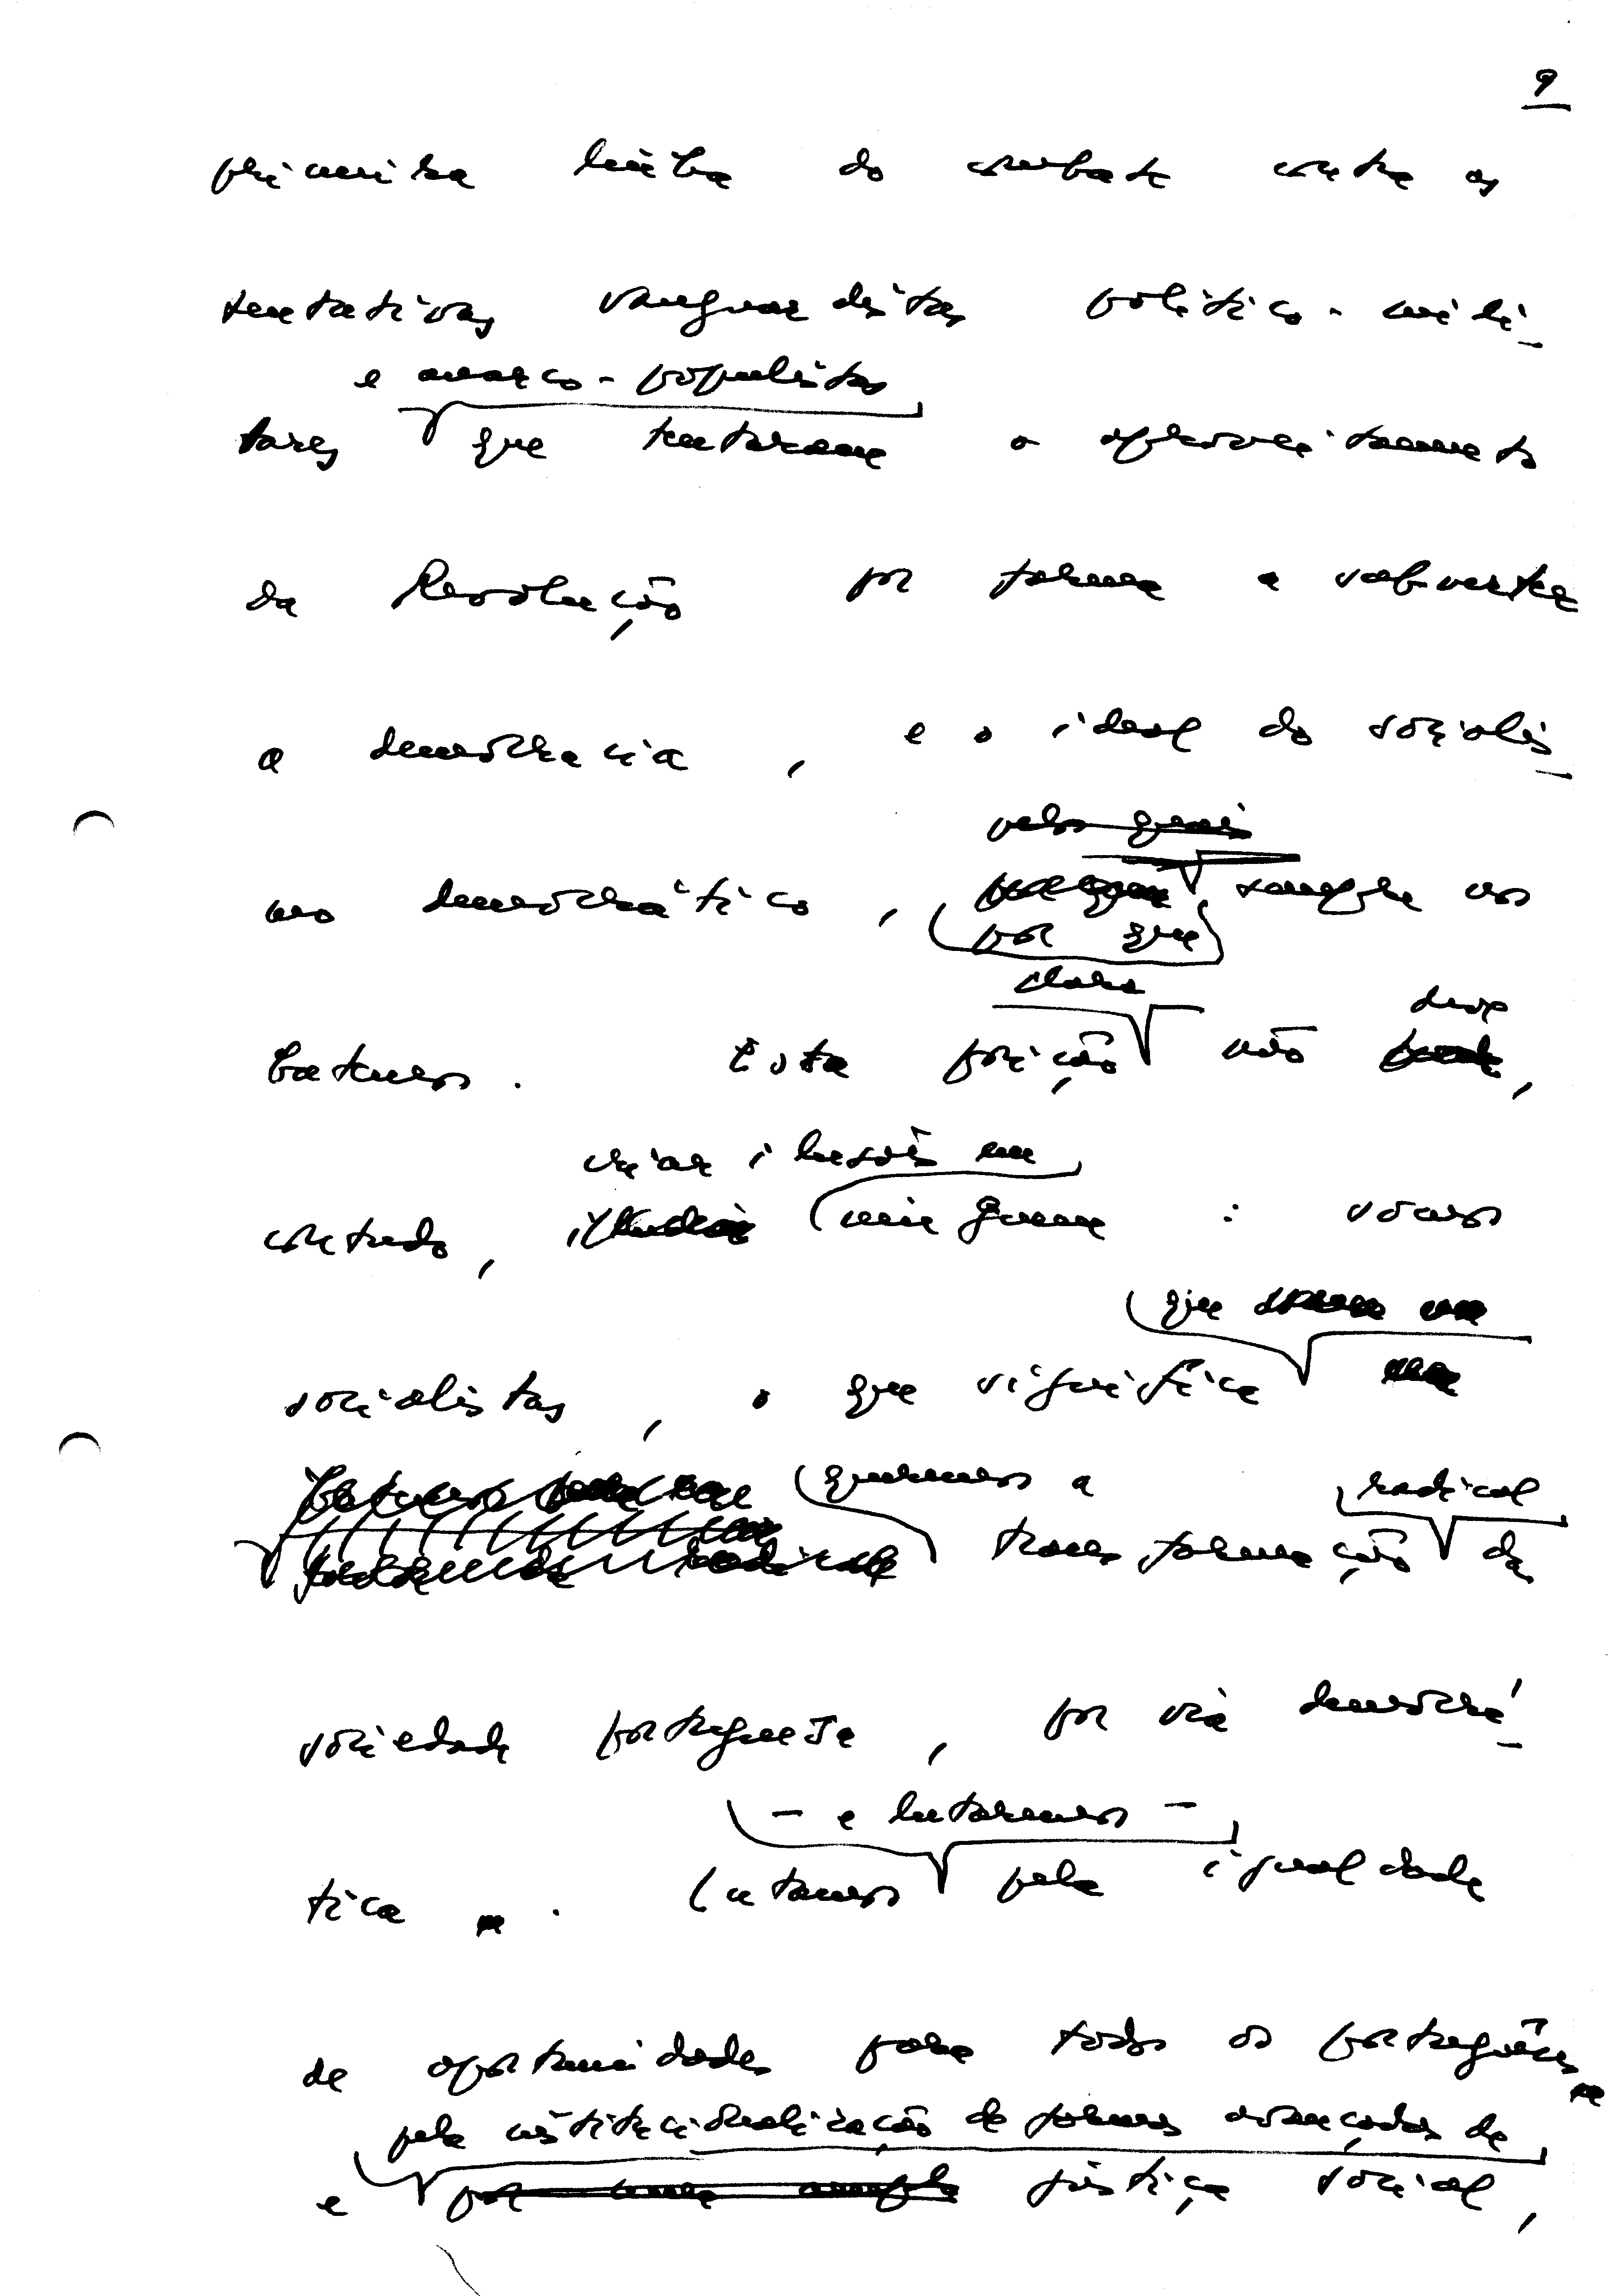 9
primeira linha do combate contra as
tentativas vanguardistas político-mili-
e anarco-populistas
tares que tentaram o aproveitamento
da Revolução por forma a subverter
a democracia, e o ideal do socialis-
pelos quais
mo democrático, sempre nos
por que
clara deve
batemos. Esta posição não,
criar ilusões em
contudo, ninguém : somos
que
socialistas, o que significa
queremos a radical
transformação da
sociedade portuguesa, por via democrá-
- e lutaremos -
tica. Lutamos pela igualdade
de oportunidades para todos os portugueses
pela institucionalização de formas avançadas de
e por uma ampla justiça social,